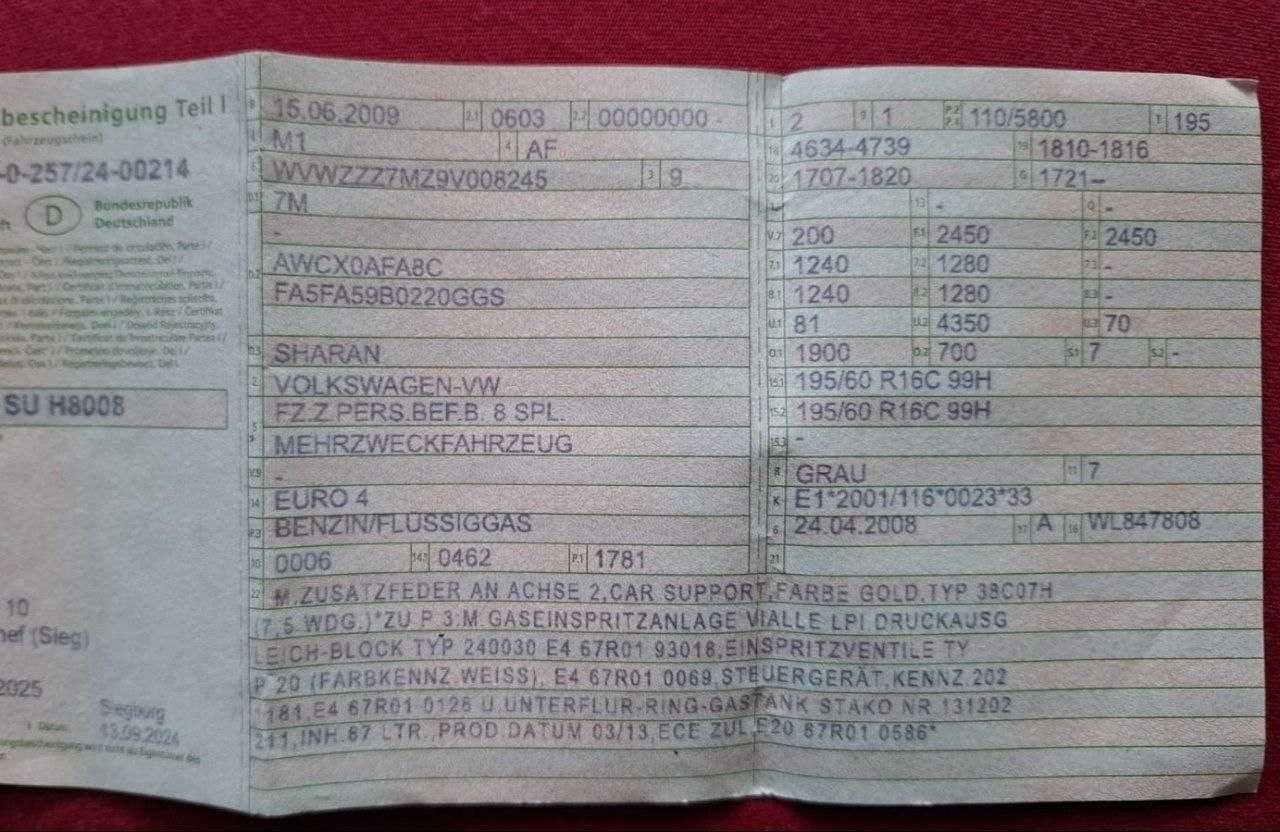 bescheinigung Teil I
(Fahrzeugschein)
-0-257/24-00214
D
Bundesrepublik
Deutschland
SU H8008
10
nef (Sieg)
2025
Siegburg
13.09.2024
B 15.06.2009 2.1 0603 2.2 00000000 -
J M1 4 AF
E WVWZZZ7MZ9V008245 3 9
D.1 7M
-
D.2 AWCX0AFA8C
FA5FA59B0220GGS
D.3 SHARAN
2 VOLKSWAGEN-VW
5 FZ.Z.PERS.BEF.B. 8 SPL.
MEHRZWECKFAHRZEUG
V.9 -
14 EURO 4
P.3 BENZIN/FLÜSSIGGAS
10 0006 14.1 0462 P.1 1781
L 2 9 1 P.2 P.4 110/5800 T 195
18 4634-4739 19 1810-1816
20 1707-1820 G 1721-
- 13 - Q -
V.7 200 F.1 2450 F.2 2450
7.1 1240 7.2 1280 7.3 -
8.1 1240 8.2 1280 8.3 -
U.1 81 U.2 4350 U.3 70
O.1 1900 O.2 700 S.1 7 S.2 -
15.1 195/60 R16C 99H
15.2 195/60 R16C 99H
15.3 -
R GRAU 11 7
K E1*2001/116*0023*33
6 24.04.2008 17 A 16 WL847808
21
22 M.ZUSATZFEDER AN ACHSE 2,CAR SUPPORT,FARBE GOLD,TYP 38C07H
(7,5 WDG.)*ZU P.3:M.GASEINSPRITZANLAGE VIALLE LPI DRUCKAUSG
LEICH-BLOCK TYP 240030 E4 67R01 93018,EINSPRITZVENTILE TY
P 20 (FARBKENNZ.WEISS), E4 67R01 0069,STEUERGERÄT,KENNZ.202
181,E4 67R01 0126 U.UNTERFLUR-RING-GASTANK STAKO NR.131202
211,INH.67 LTR.,PROD DATUM 03/13,ECE ZUL.E20 67R01 0586*